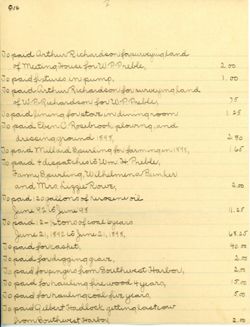 2
To paid Arthur Richardson for surveying land
of Meeting House for W. P. Preble, 2.00
To paid fixtures in pump, 1.00
To paid Arthur Richardson for surveying land
of W. P. Richardson for W. P. Preble, .75
To paid lining for stove in dining room 1.25
To paid Eben C. Roebrook plowing, and
dressing ground 1898, 2.80
To paid Millard Spurling for farming in 1898, 1.65
To paid 4 dispatches to Wm. H. Preble,
Fanny Spurling, Wilhelmena Bunker
and Mrs. Lizzie Rowe, 2.00
To paid 120 gallons of kerosene oil
June 92 to June 98 11.25
To paid 12 1/2 tons of coal 6 years
June 21, 1892 to June 21, 1898, 68.25
To paid for casket, 40.00
To paid for digging grave, 2.00
To paid for pengrs from Southwest Harbor, 2.00
To paid for hauling firewood 4 years, 15.00
To paid for hauling coal five years, 5.00
To paid Gilbert Hadlock getting last row
from Southwest Harbor 2.00